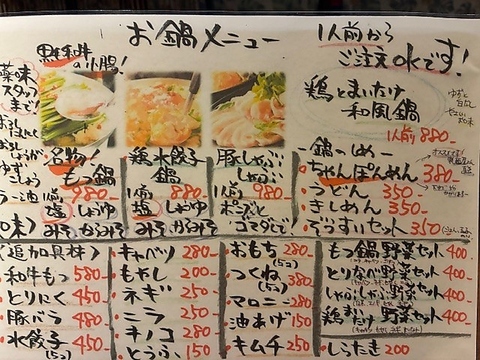 お鍋メニュー
1人前から
ご注文okです!
黒毛和牛
の小腸!
薬味
スタッフ
まで!
鶏とまいたけ
和風鍋
1人前 880-
名物!
もつ鍋
1人前 980-
塩 しょうゆ
みそ からみそ
鶏水餃子
鍋
1人前 880-
塩 しょうゆ
みそ からみそ
豚しゃぶ
しゃぶ
1人前 980-
ポン酢と
ゴマだしで!
鍋のしめー
ちゃんぽんめん 380-
うどん 350-
きしめん 350-
ぞうすいセット 350
(追加具材)
和牛もつ 580-
とりにく 450-
豚バラ 480-
水餃子 450-
(5コ)
キャベツ 280-
もやし 200-
ネギ 250-
ニラ 250-
キノコ 280-
とうふ 150-
おもち 280-
(5コ)
つくね 380-
(5コ)
マロニー 280-
油あげ 150-
キムチ 250-
もつ鍋野菜セット 400-
とりなべ野菜セット 400-
しゃぶしゃぶ野菜セット 400-
野菜セット 400-
しらたき 200